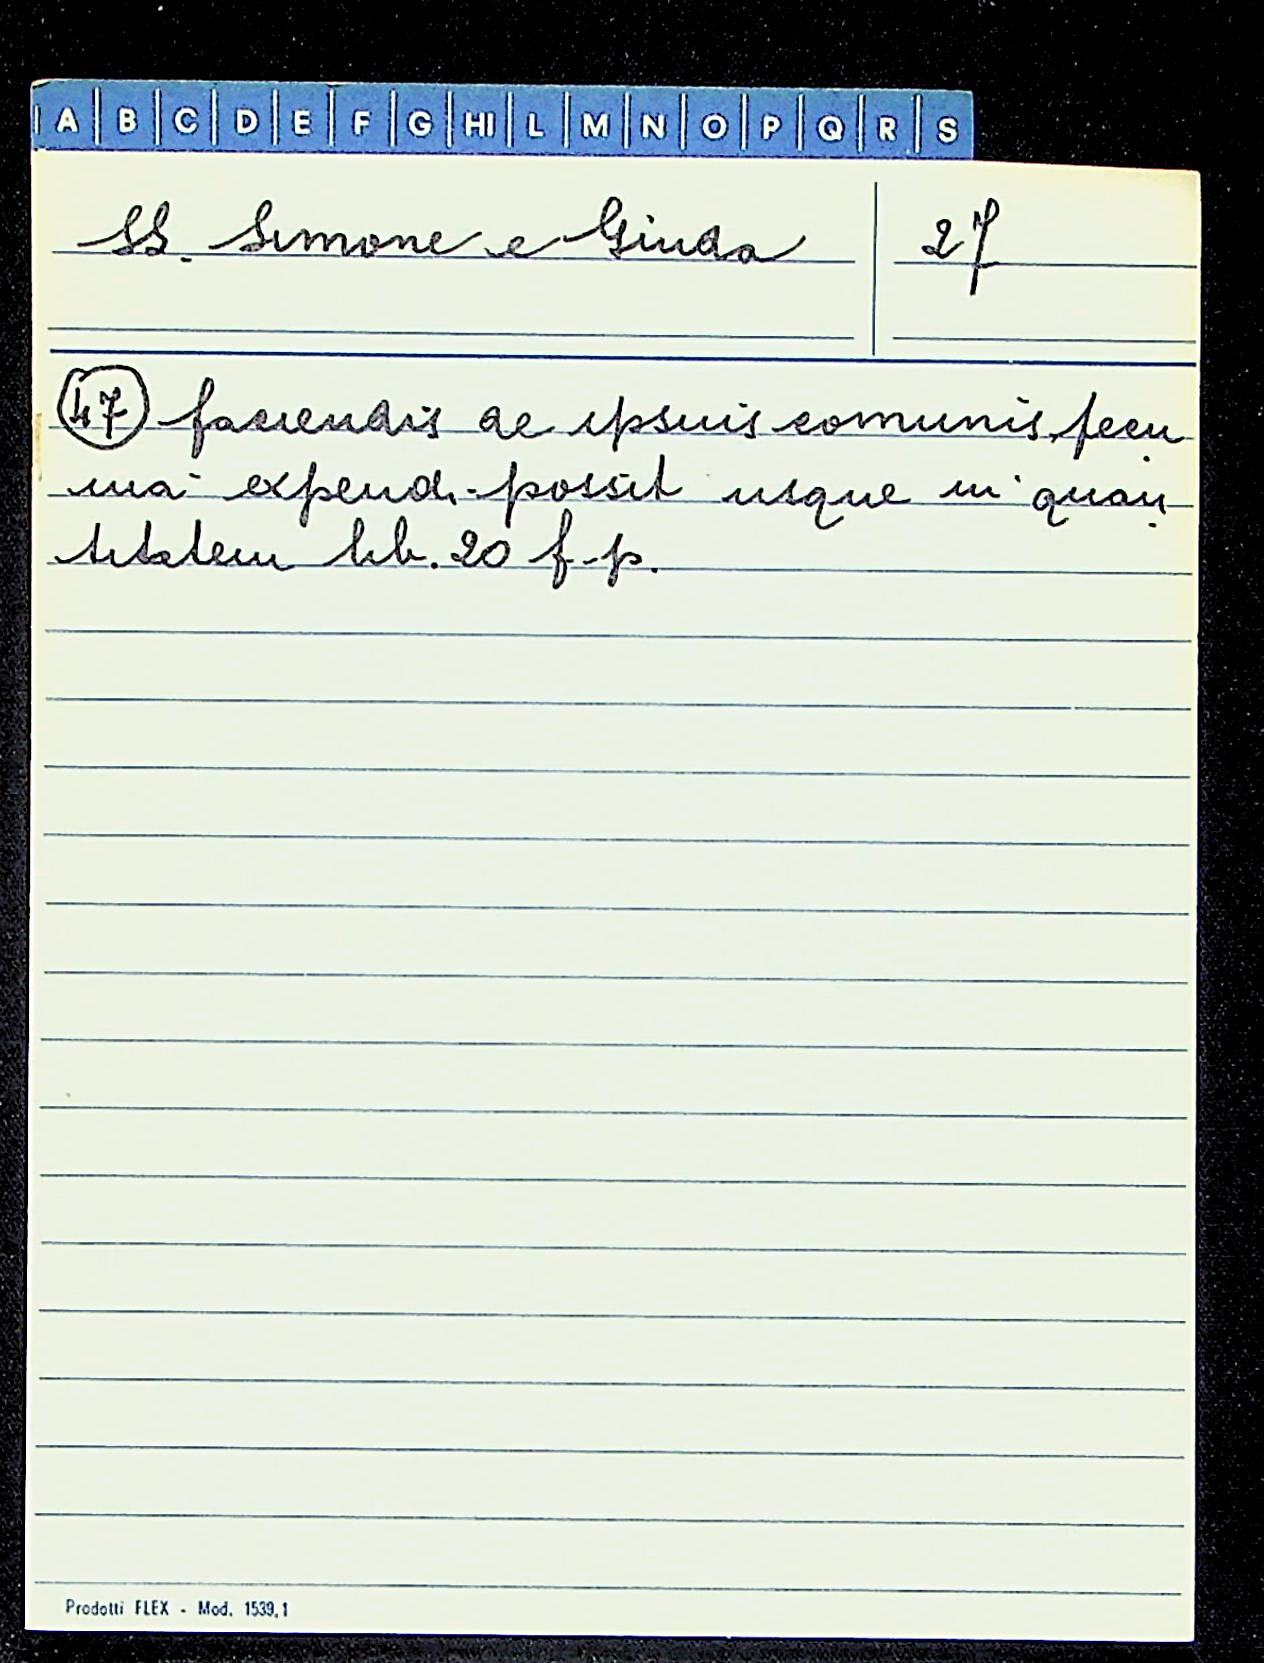 A B C D E F G HI L M N O P Q R S
SS. Simone e Giuda 27
47 faciendis de ipsius comunis pecu
nia expend. possit usque in quan
titatem lib. 20 f. p.
Prodotti FLEX - Mod. 1539,1